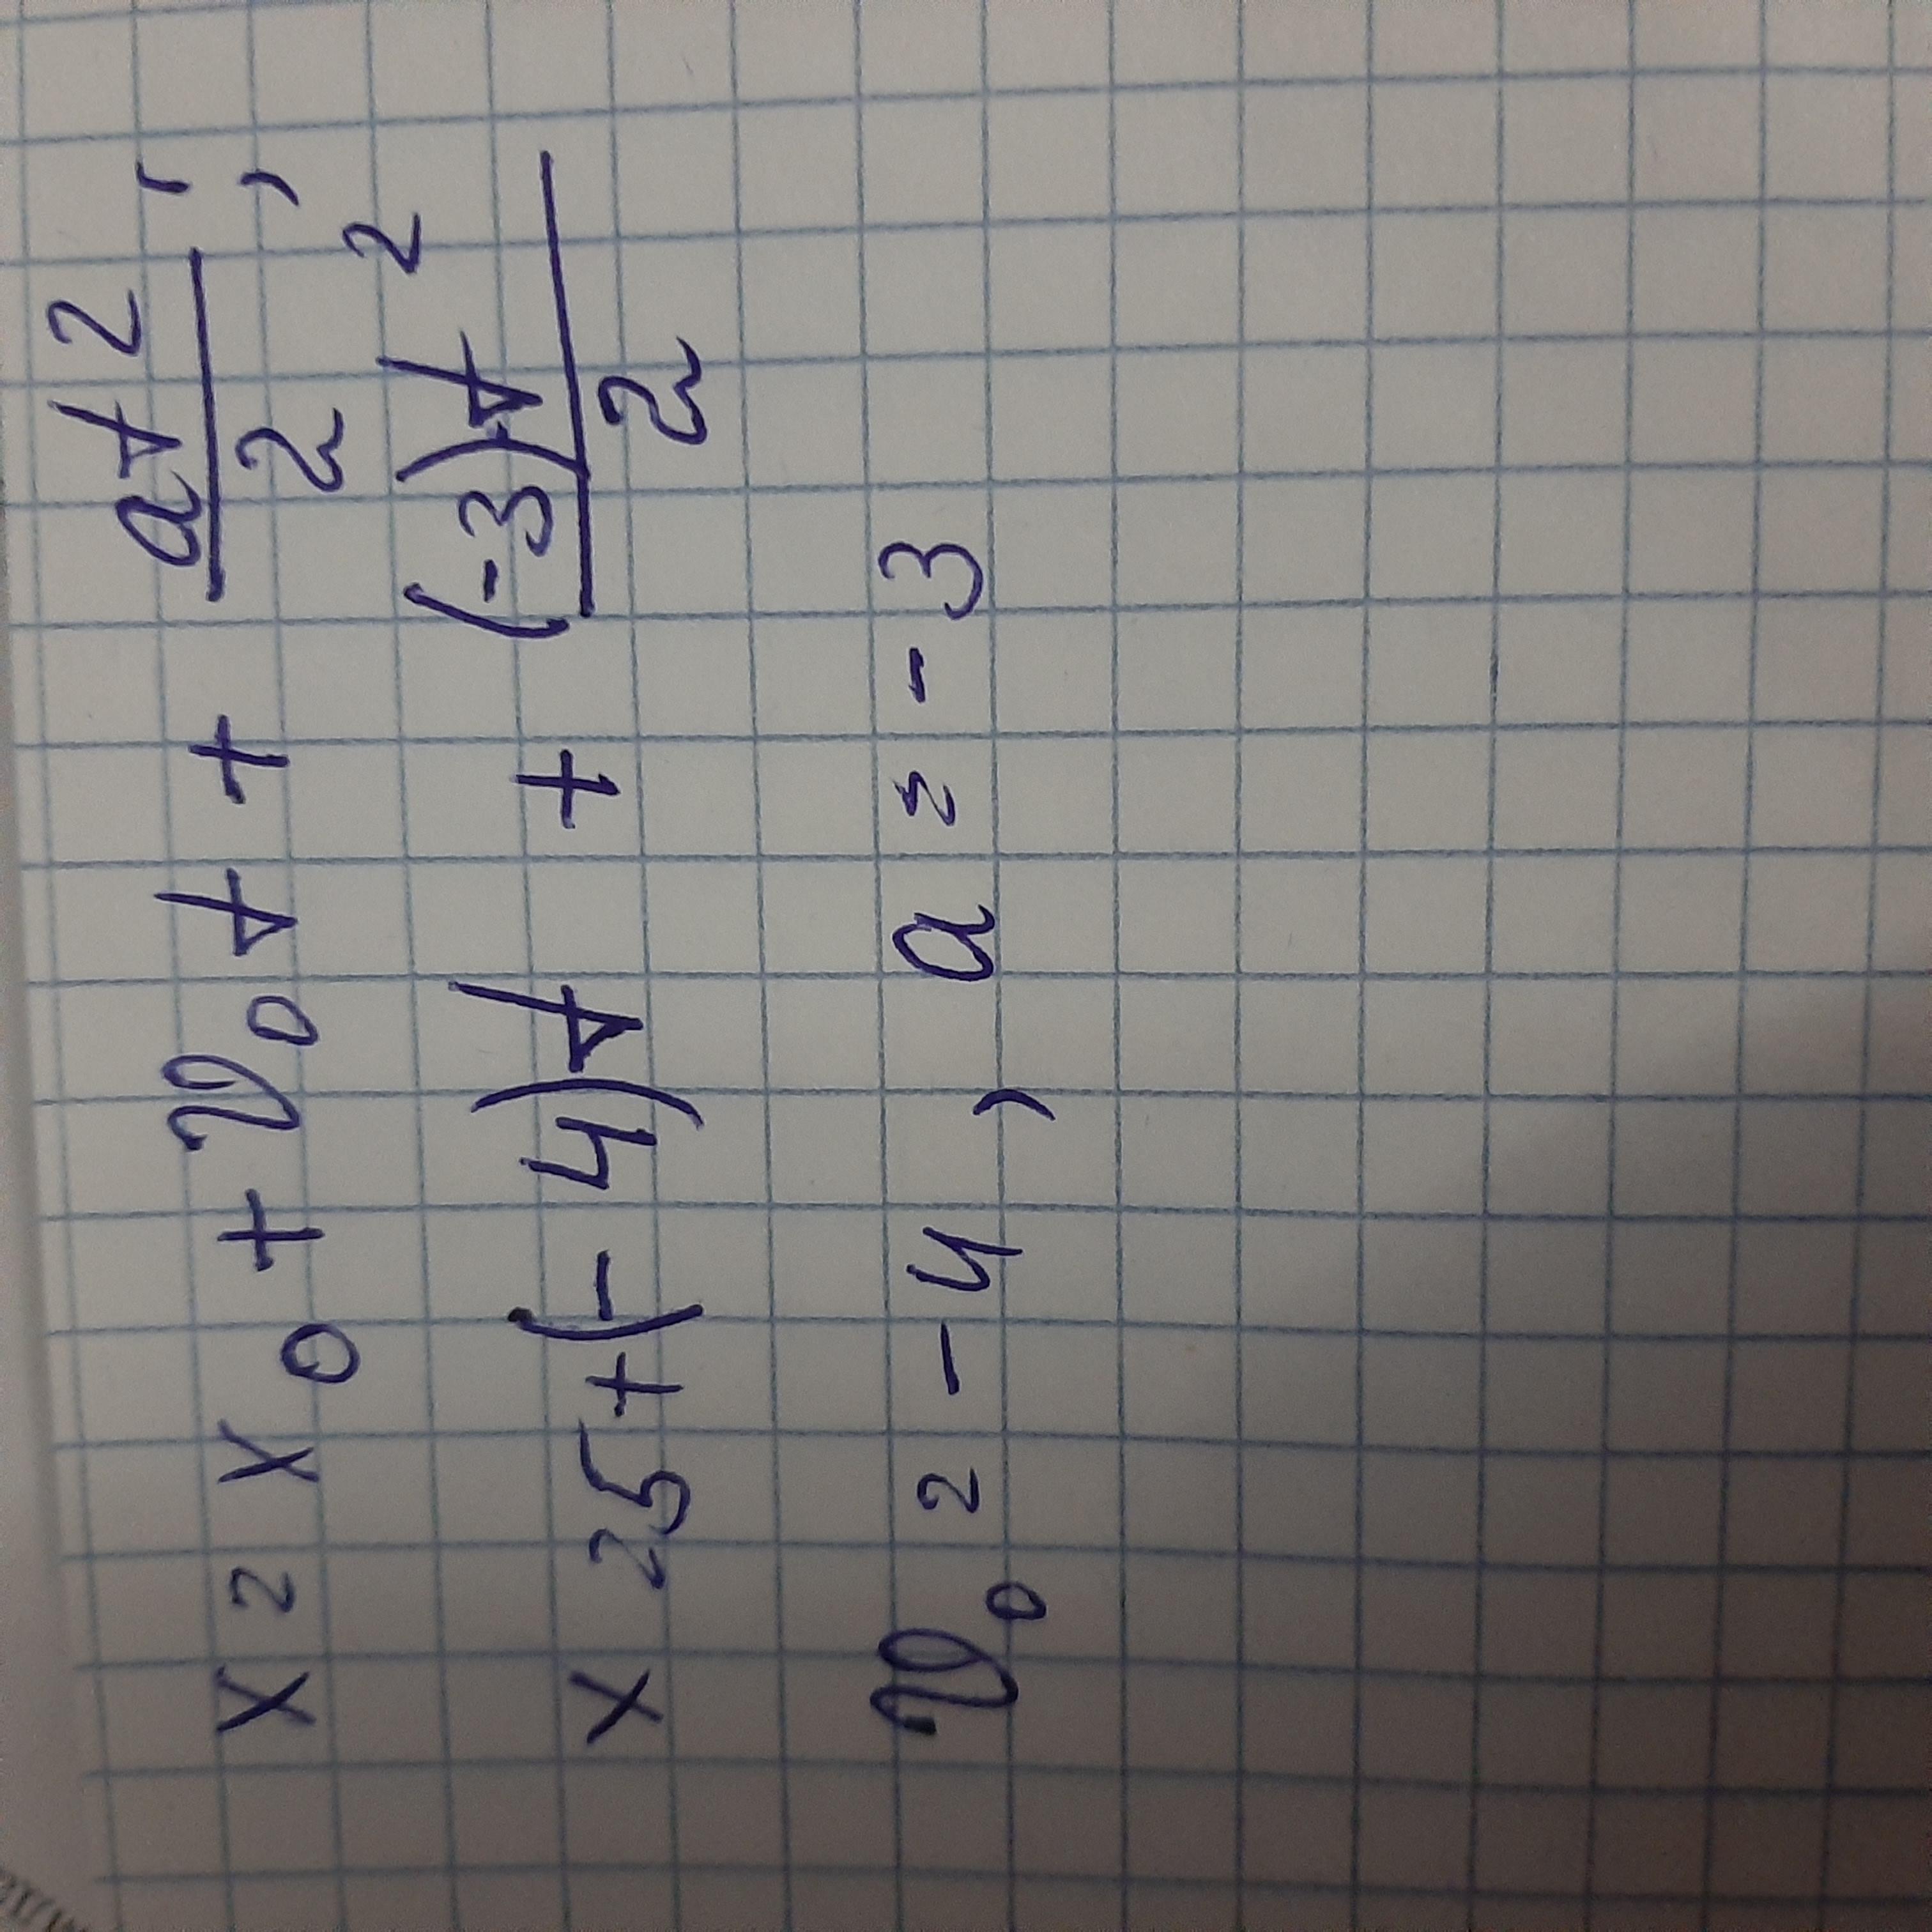 x = x₀ + v₀t + at²/2;
x = 5 + (-4)t + (-3)t²/2
v₀ = -4, a = -3